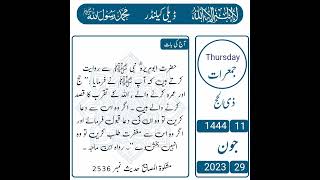 لا اله الا الله
ڈیلی کیلنڈر
محمد رسول الله
آج کی بات
حضرت ابوہریرہؓ نبی ﷺ سے روایت
کرتے ہیں کہ آپ ﷺ نے فرمایا : ’’حج
اور عمرہ کرنے والے ، اللہ کے تقرب کا قصد
کرنے والے ہیں ۔ اگر وہ اس سے دعا
کریں تو وہ ان کی دعا قبول فرمائے اور
اگر وہ اس سے مغفرت طلب کریں تو وہ
انہیں بخش دے ‘‘ ۔ رواہ ابن ماجہ ۔
مشکوٰۃ المصابیح حدیث نمبر 2536
Thursday
جمعرات
ذی الحج
1444 11
جون
2023 29